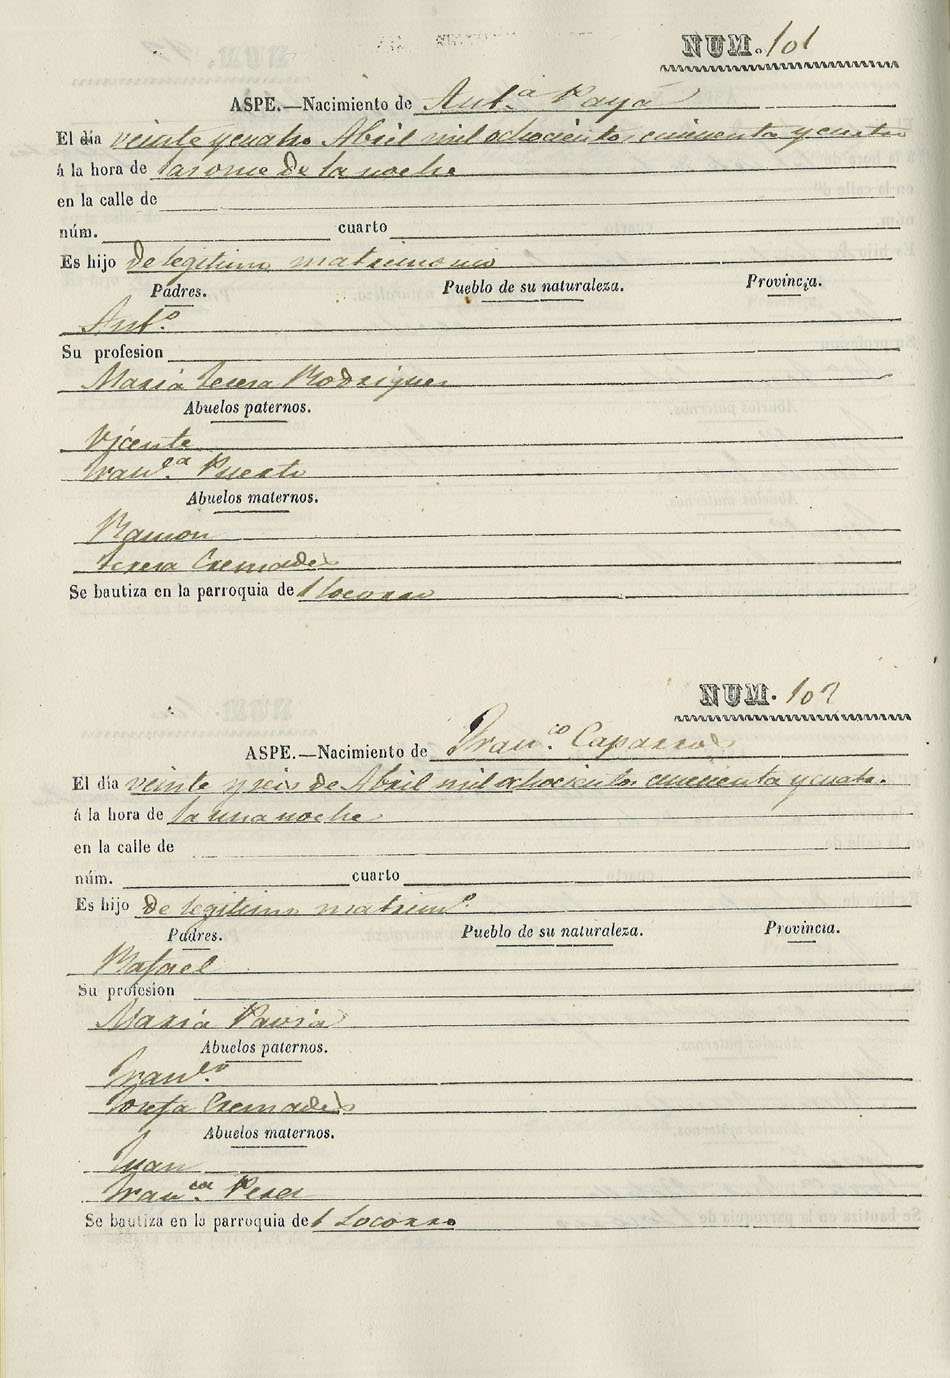 NUM. 101
ASPE.—Nacimiento de Ant.a Payá
El día veinte y cuatro Abril mil ochocientos cincuenta y cuatro
á la hora de las once de la noche
en la calle de
núm. cuarto
Es hijo de legitimo matrimonio
Padres. Pueblo de su naturaleza. Provincia.
Ant.o
Su profesion
Maria Teresa Rodriguez
Abuelos paternos.
Vicente
Fran.ca Puerto
Abuelos maternos.
Ramon
Teresa Cremades
Se bautiza en la parroquia de l Socorro
NUM. 102
ASPE.—Nacimiento de Fran.co Caparros
El día veinte y seis de Abril mil ochocientos cincuenta y cuatro
á la hora de la una noche
en la calle de
núm. cuarto
Es hijo de legitimo matrim.o
Padres. Pueblo de su naturaleza. Provincia.
Rafael
Su profesion
Maria Pavia
Abuelos paternos.
Fran.co
Josefa Cremades
Abuelos maternos.
Juan
Fran.ca Perez
Se bautiza en la parroquia de l Socorro